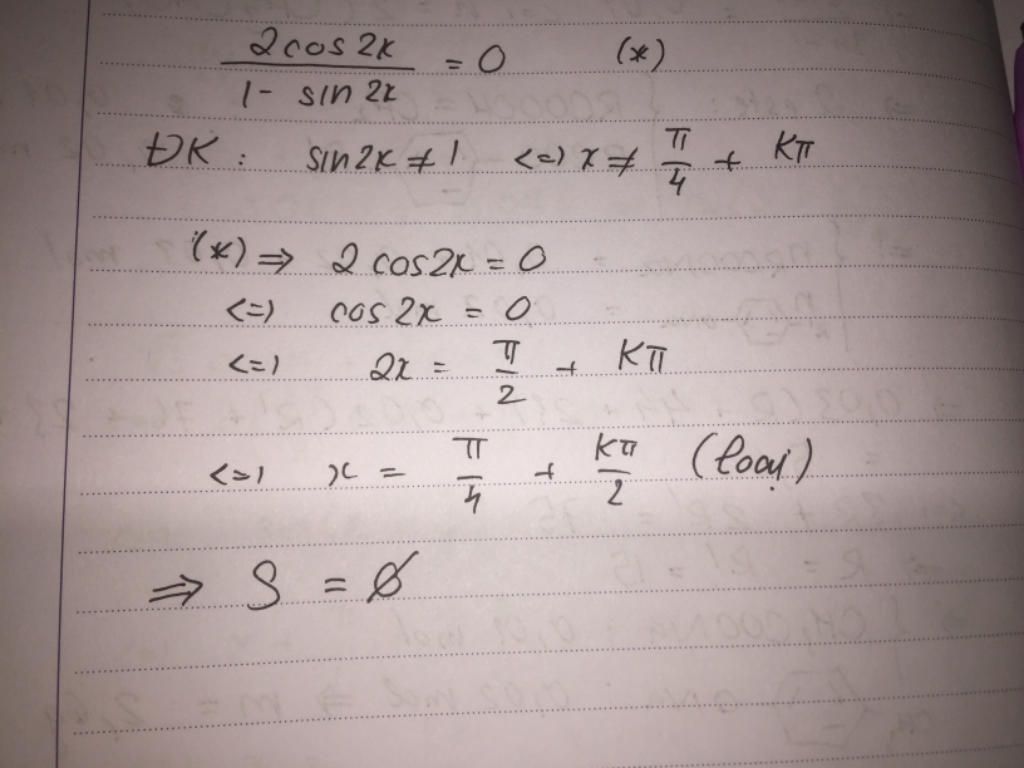 2cos2x / 1 - sin2x = 0 (*)
ĐK: sin2x ≠ 1 <=> x ≠ π/4 + Kπ
(*) ⇒ 2cos2x = 0
<=> cos2x = 0
<=> 2x = π/2 + Kπ
<=> x = π/4 + Kπ/2 (loại)
⇒ S = ∅